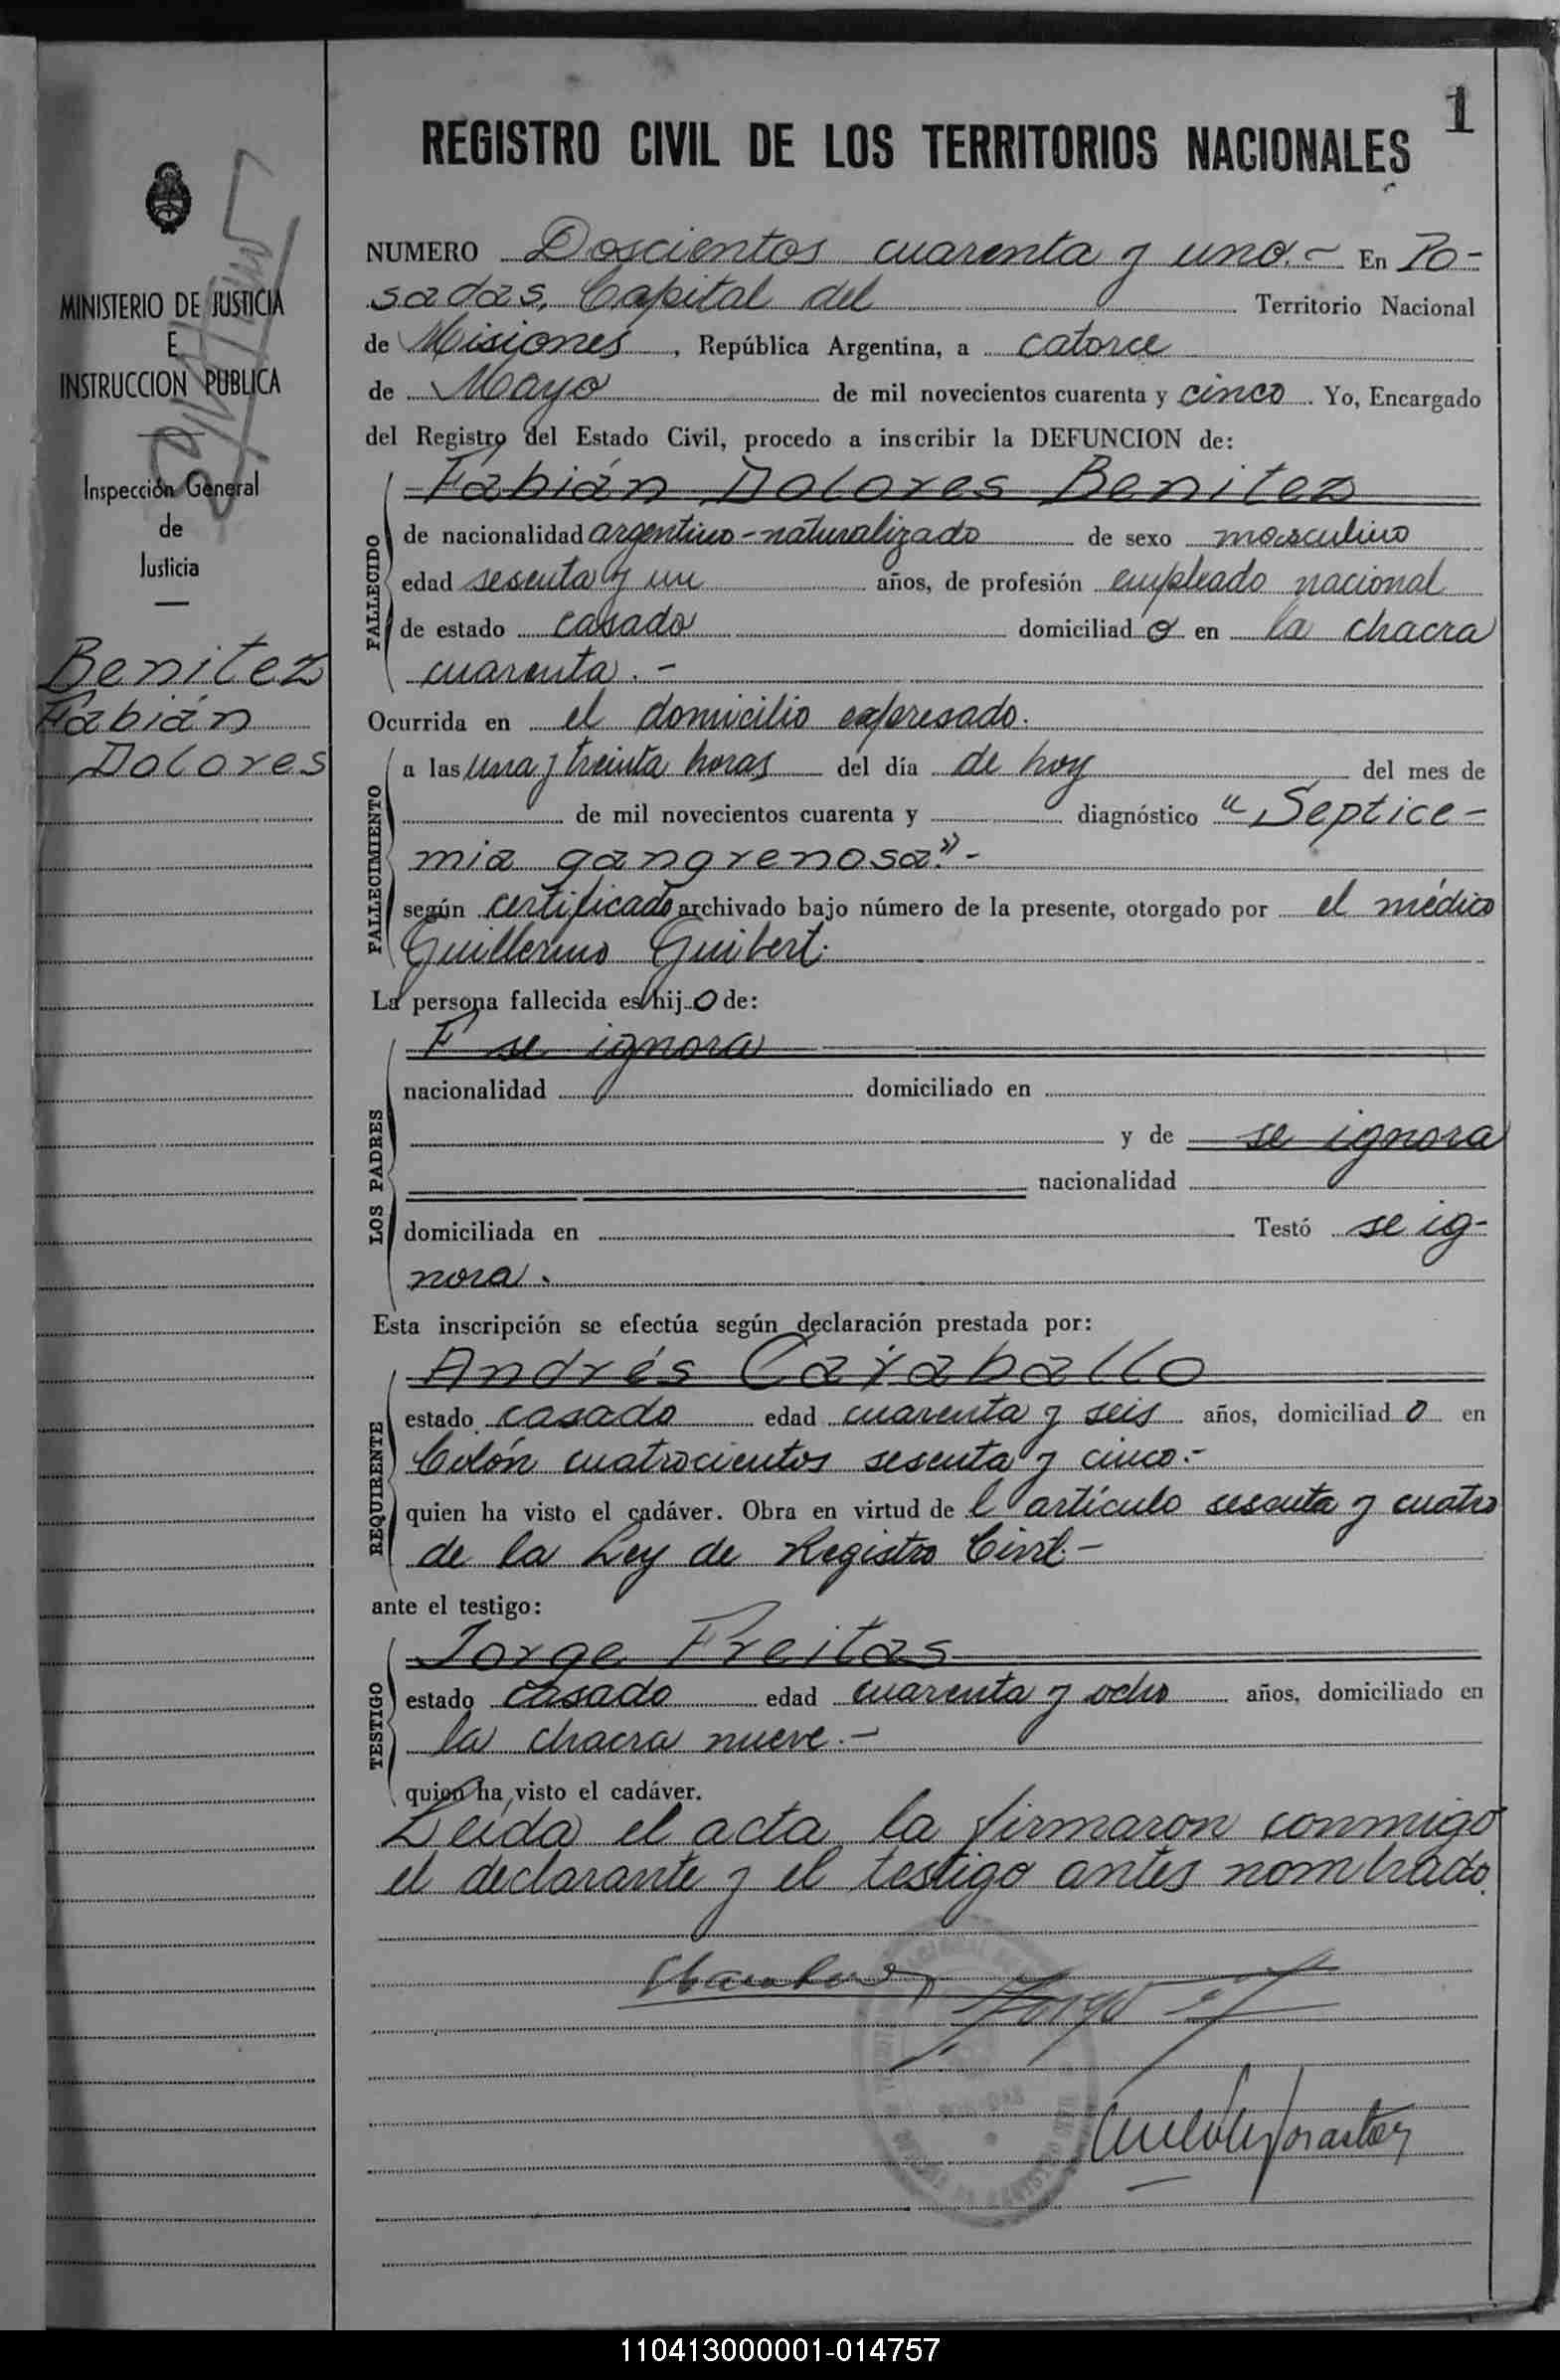 1
REGISTRO CIVIL DE LOS TERRITORIOS NACIONALES
MINISTERIO DE JUSTICIA
E
INSTRUCCION PUBLICA
Inspección General
de
Justicia
Benitez
Fabián
Dolores
NUMERO Doscientos cuarenta y uno.- En Po-
sadas, Capital del Territorio Nacional
de Misiones, República Argentina, a catorce
de Mayo de mil novecientos cuarenta y cinco. Yo, Encargado
del Registro del Estado Civil, procedo a inscribir la DEFUNCION de:
Fabián Dolores Benitez
FALLECIDO
de nacionalidad argentino-naturalizado de sexo masculino
edad sesenta y un años, de profesión empleado nacional
de estado casado domiciliado en la chacra
cuarenta.-
Ocurrida en el domicilio expresado.
FALLECIMIENTO
a las una y treinta horas del día de hoy del mes de
de mil novecientos cuarenta y diagnóstico "Septice-
mia gangrenosa"-
según certificado archivado bajo número de la presente, otorgado por el médico
Guillermo Guibert.
La persona fallecida es hijo de:
LOS PADRES
F se ignora
nacionalidad domiciliado en
y de se ignora
nacionalidad
domiciliada en Testó se ig-
nora.
Esta inscripción se efectúa según declaración prestada por:
REQUIRENTE
Andrés Caraballo
estado casado edad cuarenta y seis años, domiciliado en
Colón cuatrocientos sesenta y cinco.-
quien ha visto el cadáver. Obra en virtud del artículo sesenta y cuatro
de la Ley de Registro Civil.-
ante el testigo:
TESTIGO
Jorge Freitas
estado casado edad cuarenta y ocho años, domiciliado en
la chacra nueve.-
quien ha visto el cadáver.
Leída el acta, la firmaron conmigo
el declarante y el testigo antes nombrado.
110413000001-014757